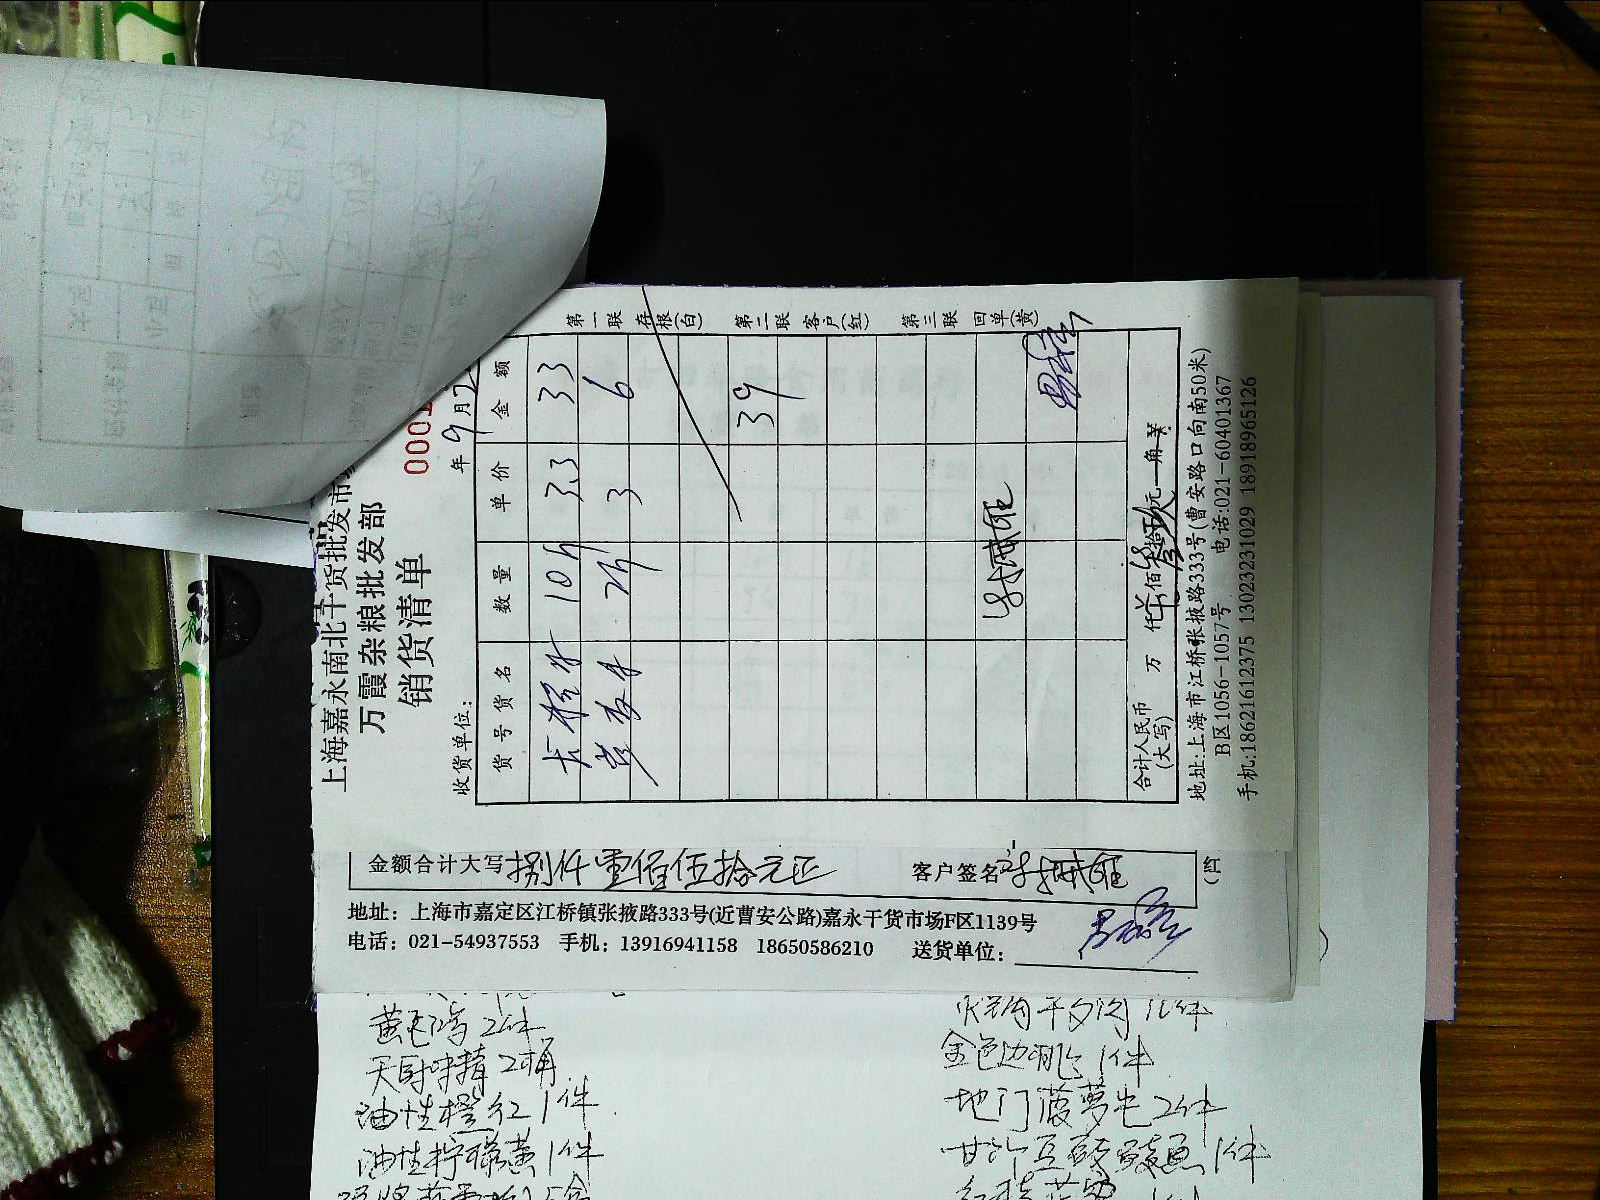 上海嘉永南北干货批发市
万霞杂粮批发部
销货清单
0001
收货单位：
年 9月2
货号货名 数量 单价 金额
10斤 3.3 33
2斤 3 6
39
合计人民币(大写) 万 仟 佰 叁拾玖元 角
地址:上海市江桥张掖路333号(曹安路口向南50米)
B区1056-1057号 电话:021-60401367
手机:18621612375 13023231029 18918965126
第一联 存根(白) 第二联 客户(红) 第三联 回单(黄)
金额合计大写 捌仟壹佰伍拾元正 客户签名
(红
地址：上海市嘉定区江桥镇张掖路333号(近曹安公路)嘉永干货市场F区1139号
电话：021-54937553 手机：13916941158 18650586210 送货单位：
2件
天厨味精 2桶
油性橙红 1件
油性柠檬黄 1件
金色边桃 1件
地门菠萝 2件
甘竹豆豉鲮鱼 1件